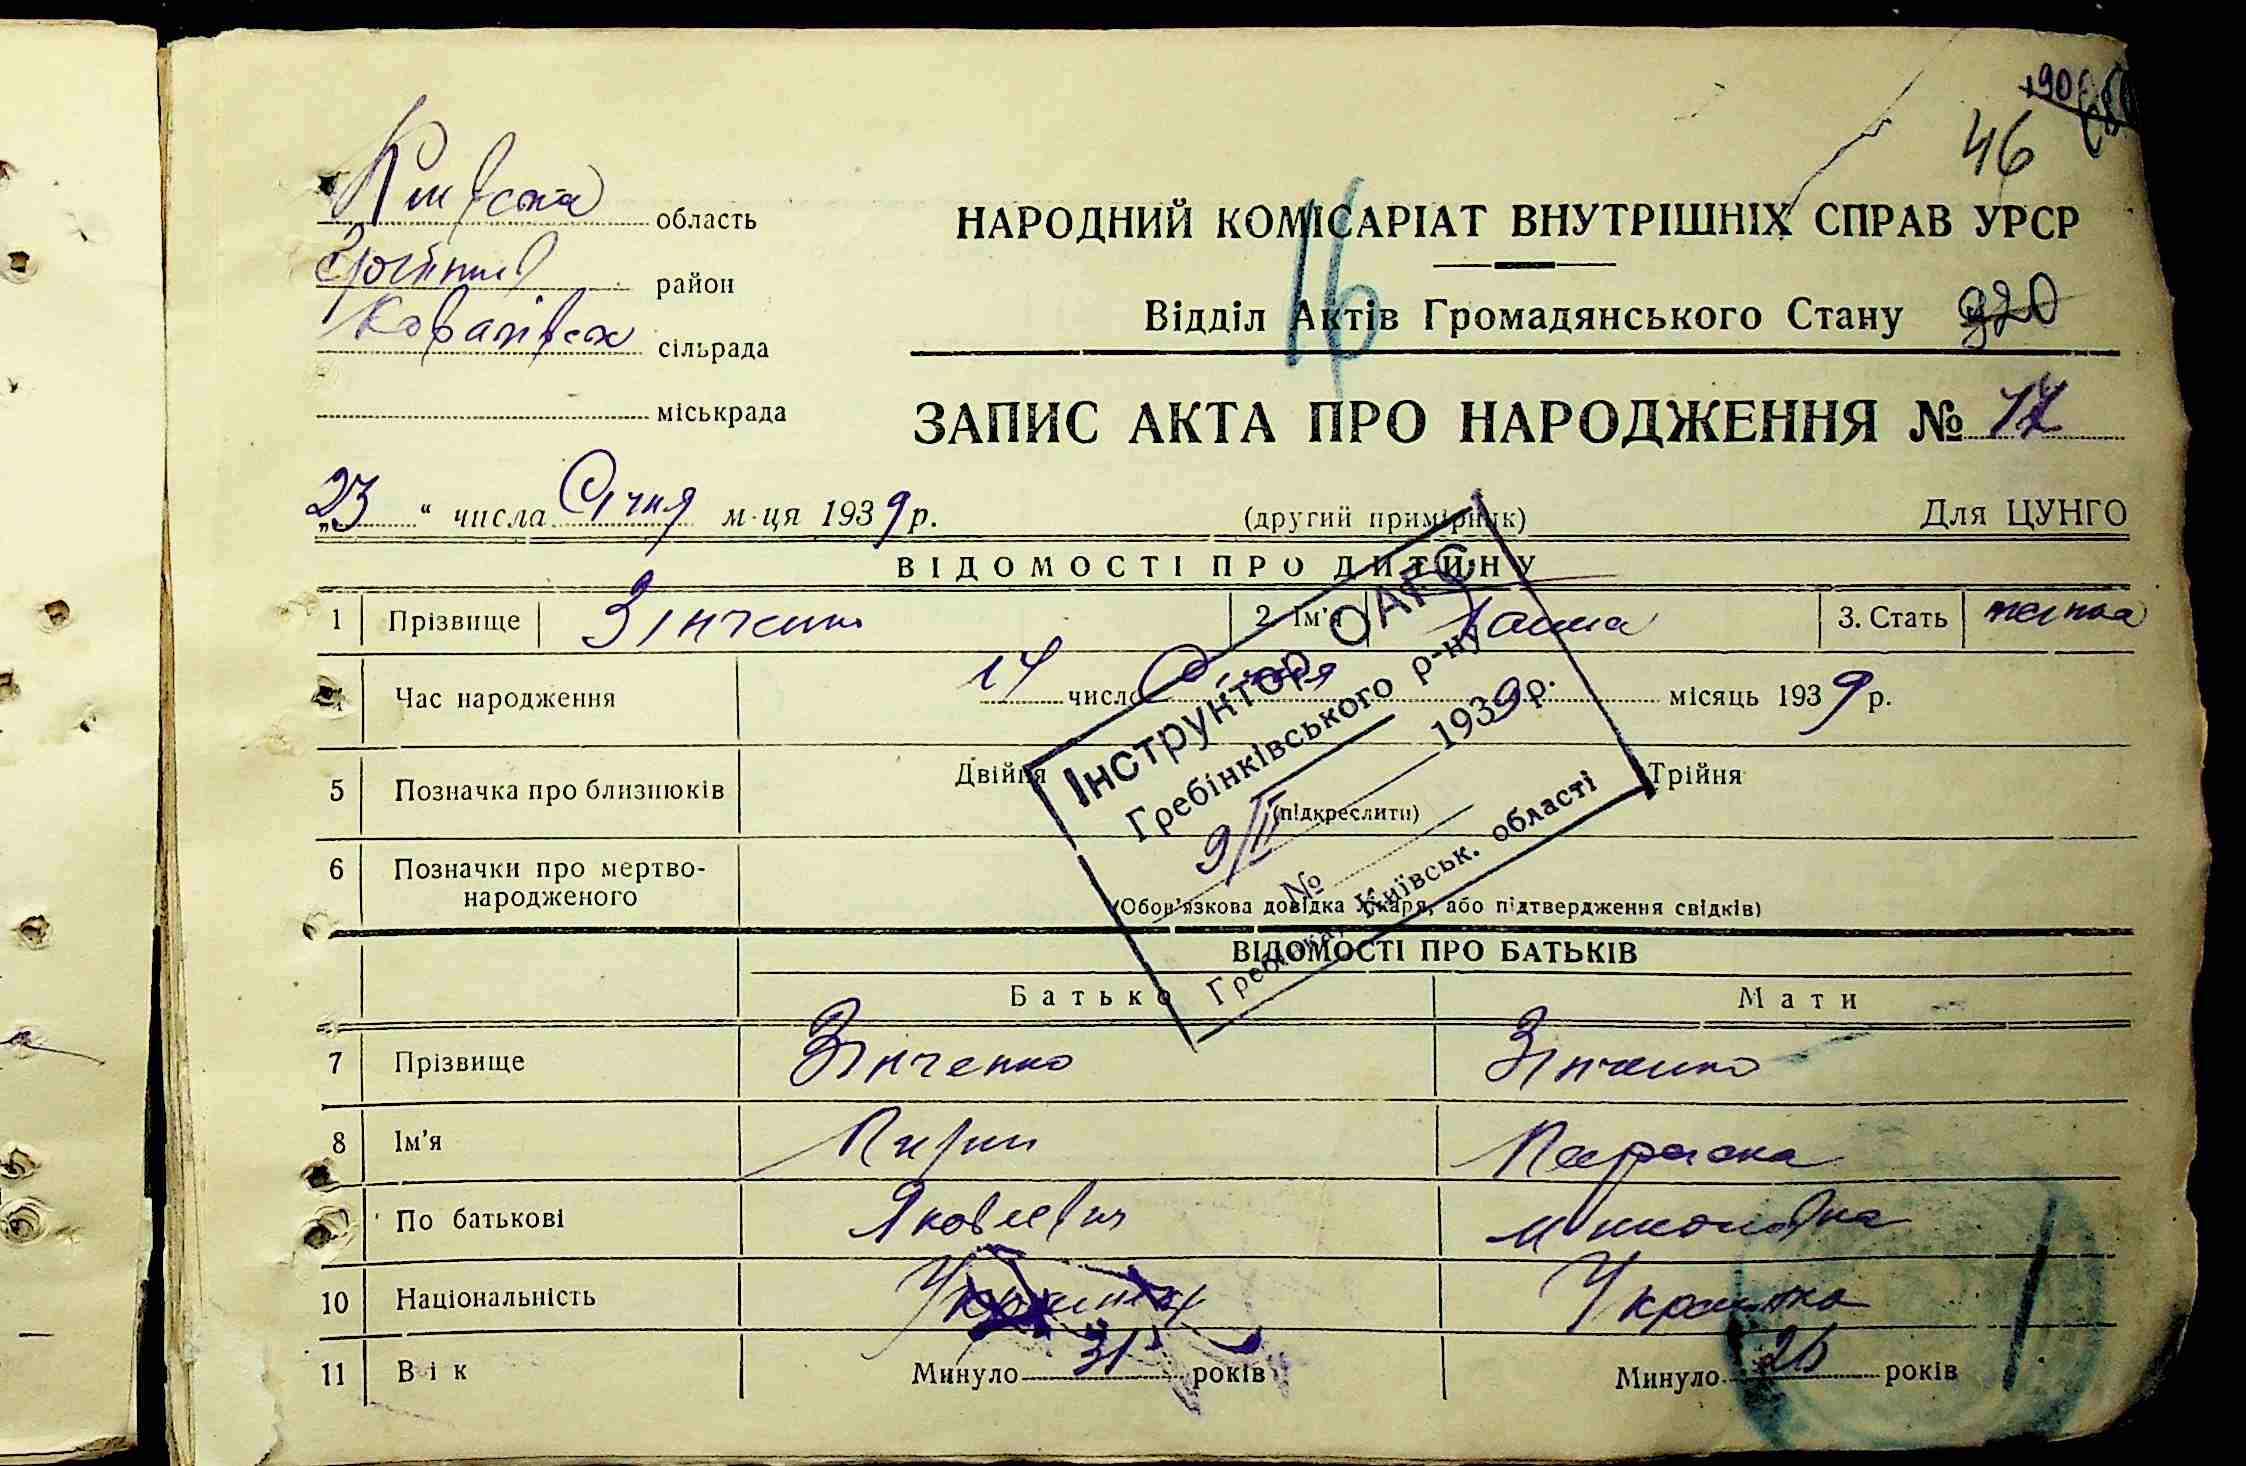 46
Київська область
район
Ковалівська сільрада
міськрада
НАРОДНИЙ КОМІСАРІАТ ВНУТРІШНІХ СПРАВ УРСР
16
Відділ Актів Громадянського Стану 920
ЗАПИС АКТА ПРО НАРОДЖЕННЯ № 17
„23“ числа Січня м-ця 1939 р. (другий примірник) Для ЦУНГО
ВІДОМОСТІ ПРО ДИТИНУ
1 Прізвище Зінченко 2. Ім'я Ганна 3. Стать жіноча
4 Час народження 14 число Січня місяць 1939 р.
5 Позначка про близнюків Двійня Трійня
(підкреслити)
6 Позначки про мертво-
народженого
(Обов'язкова довідка лікаря, або підтвердження свідків)
Інструктор ОАГС
Гребінківського р-ну
9/II 1939 р.
№
Гребінка, Київськ. області
ВІДОМОСТІ ПРО БАТЬКІВ
Батько Мати
7 Прізвище Зінченко Зінченко
8 Ім'я Параска
9 По батькові Яковлевич Миколаївна
10 Національність Українець Українка
11 Вік Минуло 31 років Минуло 26 років